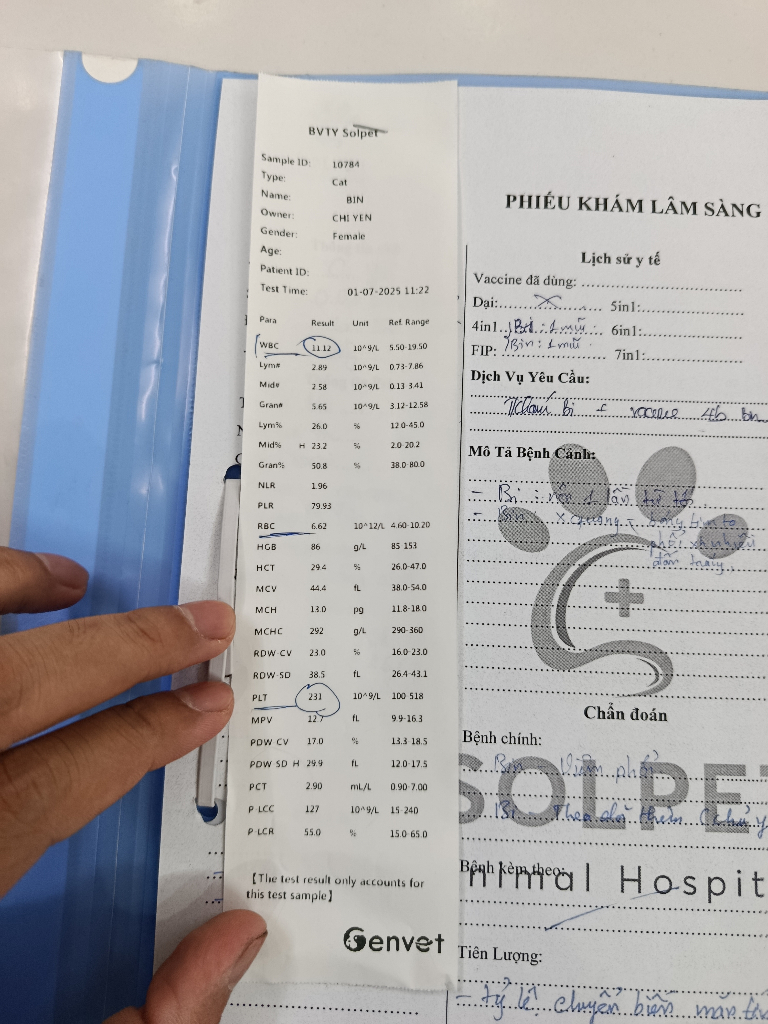 BVTY Solpet
Sample ID: 10784
Type: Cat
Name: BIN
Owner: CHI YEN
Gender: Female
Age:
Patient ID:
Test Time: 01-07-2025 11:22
Para Result Unit Ref. Range
WBC 11.12 10^9/L 5.50-19.50
Lym# 2.89 10^9/L 0.73-7.86
Mid# 2.58 10^9/L 0.13-3.41
Gran# 5.65 10^9/L 3.12-12.58
Lym% 26.0 % 12.0-45.0
Mid% H 23.2 % 2.0-20.2
Gran% 50.8 % 38.0-80.0
NLR 1.96
PLR 79.93
RBC 6.62 10^12/L 4.60-10.20
HGB 86 g/L 85-153
HCT 29.4 % 26.0-47.0
MCV 44.4 fL 38.0-54.0
MCH 13.0 pg 11.8-18.0
MCHC 292 g/L 290-360
RDW-CV 23.0 % 16.0-23.0
RDW-SD 38.5 fL 26.4-43.1
PLT 231 10^9/L 100-518
MPV 12.7 fL 9.9-16.3
PDW-CV 17.0 % 13.3-18.5
PDW-SD H 29.9 fL 12.0-17.5
PCT 2.90 mL/L 0.90-7.00
P-LCC 127 10^9/L 15-240
P-LCR 55.0 % 15.0-65.0
【The test result only accounts for
this test sample】
Genvet
PHIẾU KHÁM LÂM SÀNG
Lịch sử y tế
Vaccine đã dùng:
Dại: X 5in1:
4in1 Bi: 1 mũi 6in1:
FIP: Bin: 1 mũi 7in1:
Dịch Vụ Yêu Cầu:
Khám bi +
Mô Tả Bệnh Cảnh:
- Bi: nôn 1 lần
- Bin: X quang
Chẩn đoán
Bệnh chính:
Bin: Viêm phổi
Bi: Theo dõi thêm
SOLPET
Bệnh kèm theo:
Animal Hospit
Tiên Lượng:
- tỷ lệ chuyển biến